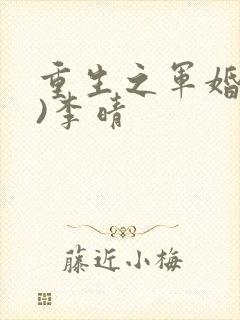 重生之军婚
)李晴
藤近小梅